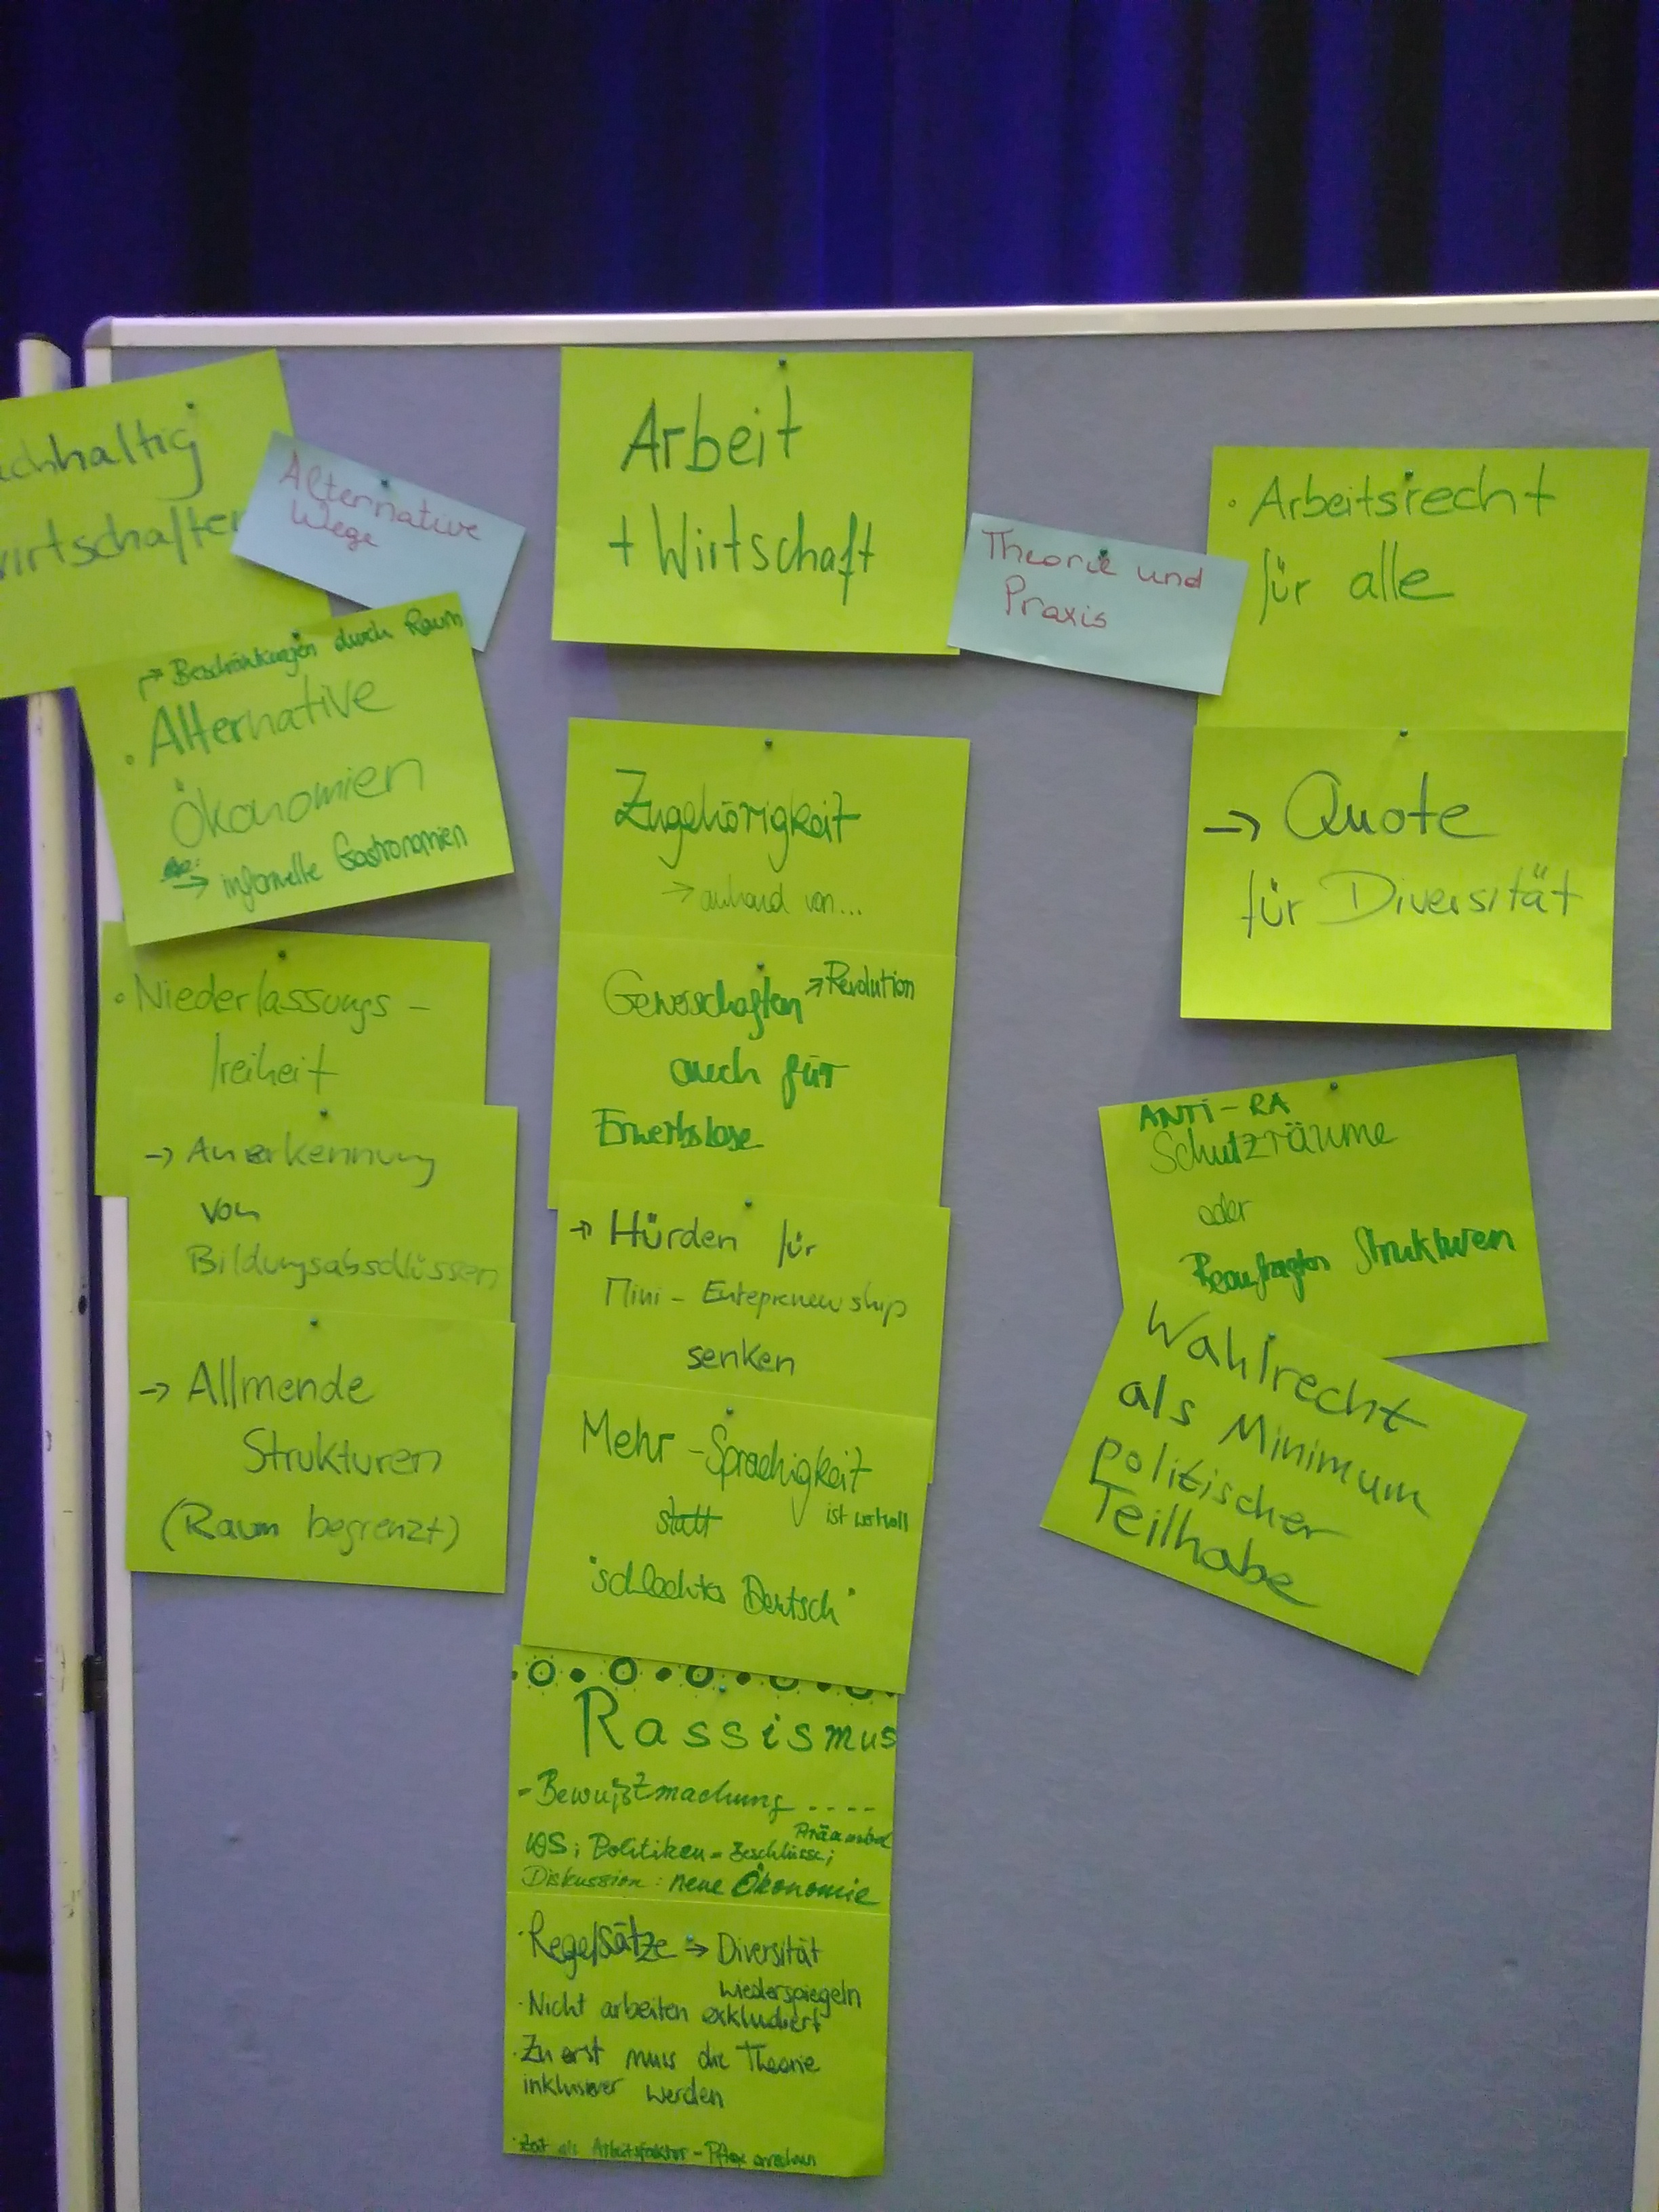 Arbeit
+ Wirtschaft
chhaltig
wirtschaften
Alternative
Wege
↱ Beschränkungen durch Raum
• Alternative
Ökonomien
→ informelle Gastronomien
• Niederlassungs-
freiheit
→ Anerkennung
von
Bildungsabschlüssen
→ Allmende
Strukturen
(Raum begrenzt)
Zugehörigkeit
→ anhand von...
↗ Revolution
auch für
Erwerbslose
→ Hürden für
Mini - Entepreneurship
senken
Mehr - Sprachigkeit
statt ist wertvoll
"schlechtes Deutsch"
Rassismus
- Bewußtmachung ----
Präambel
Politiken - Beschlüsse;
Diskussion: neue Ökonomie
· Regelsätze → Diversität
wiederspiegeln
· Nicht arbeiten exkludiert
· Zu erst muss die Theorie
inklusiver werden
· Zeit als Arbeitsfaktor - Pflege
Theorie und
Praxis
• Arbeitsrecht
für alle
→ Quote
für Diversität
ANTI-RA
Schutzräume
oder
Beauftragten Strukturen
Wahlrecht
als Minimum
politischer
Teilhabe